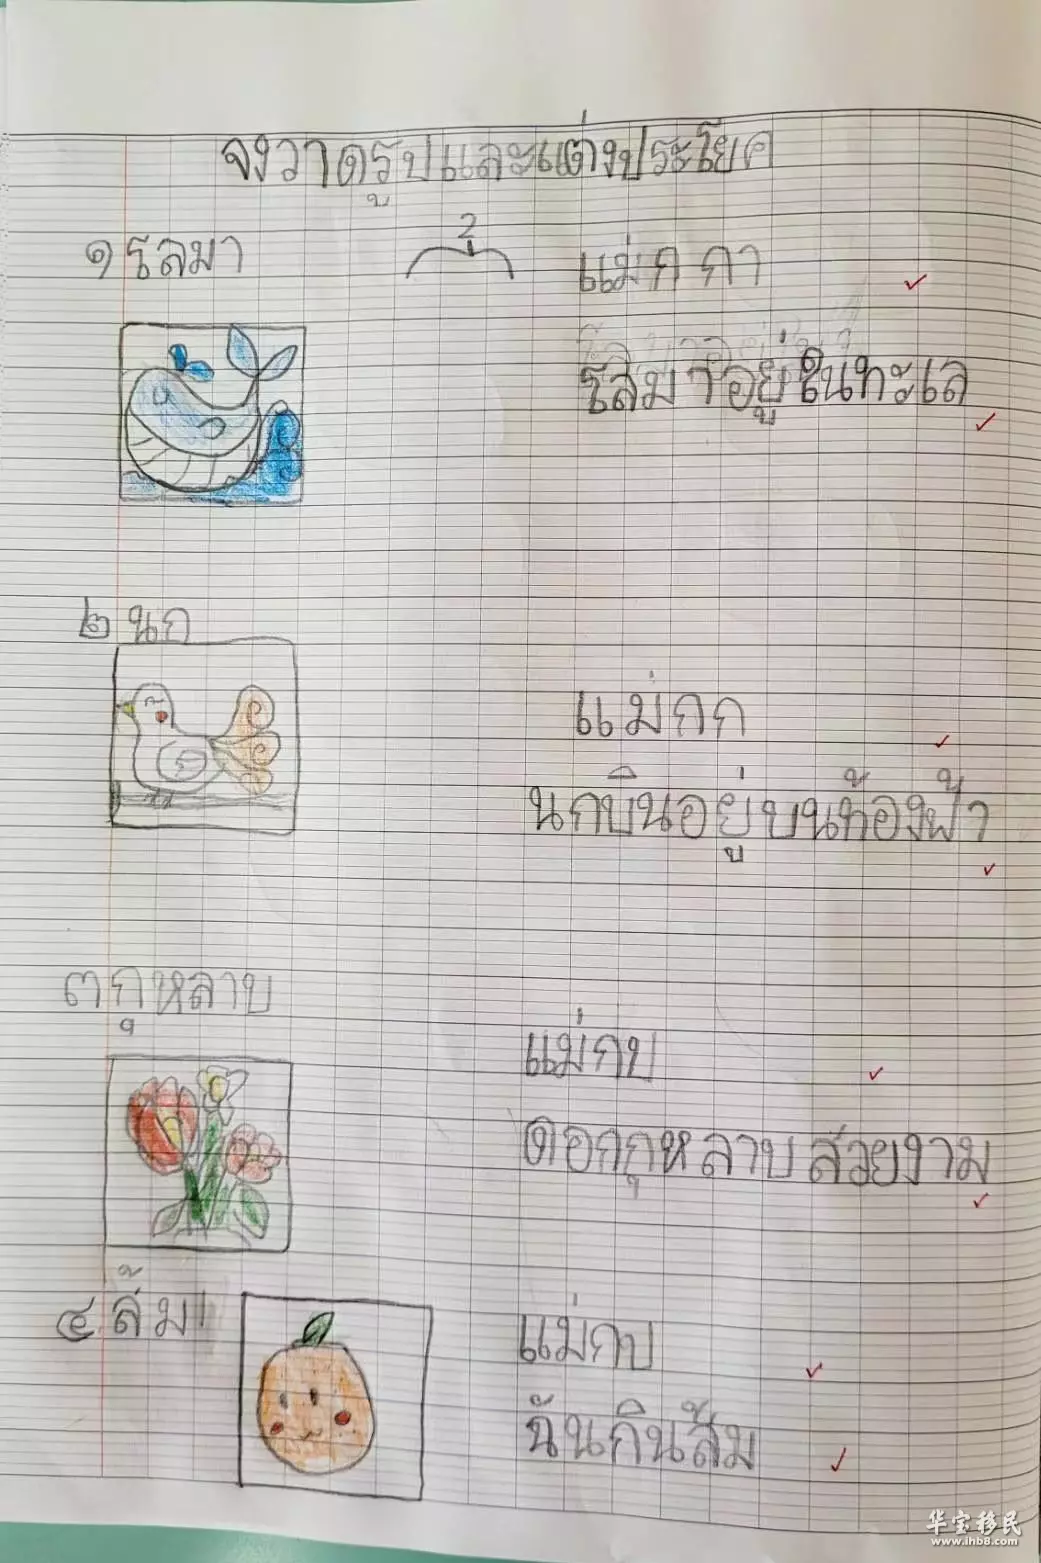 จงวาดรูปและแต่งประโยค
๑ โลมา
2
แม่ก กา
โลมาอยู่ในทะเล
๒ นก
แม่กก
นกบินอยู่บนท้องฟ้า
๓ กุหลาบ
แม่กบ
ดอกกุหลาบสวยงาม
๔ ส้ม
แม่กบ
ฉันกินส้ม
华宝移民
www.ihb8.com